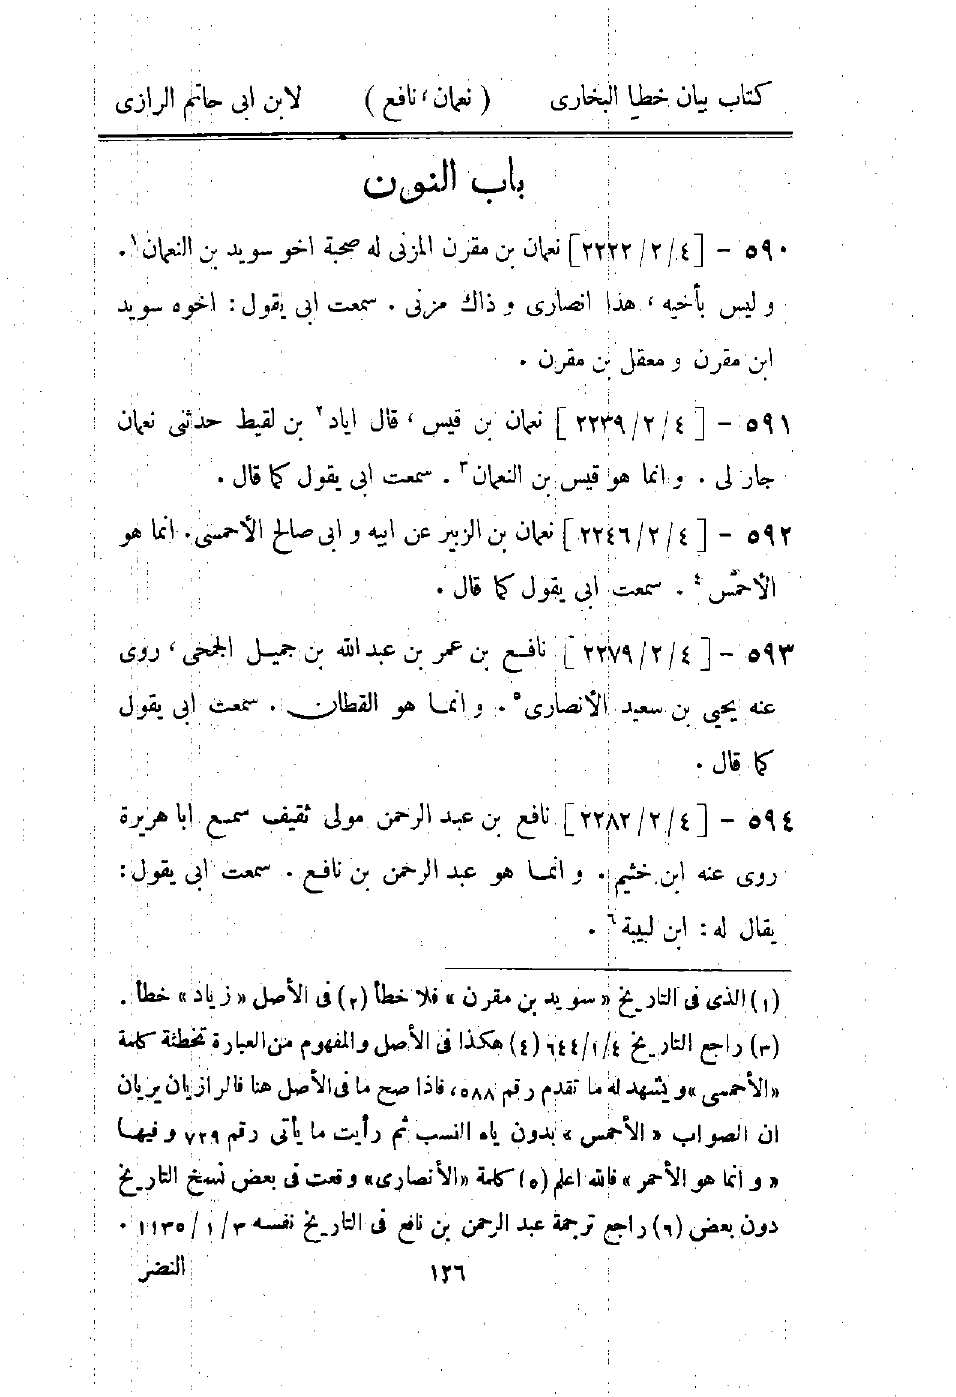 كتاب بيان خطأ البخارى ( نعمان، نافع ) لابن ابى حاتم الرازى
باب النون
٥٩٠ - [٢٢٢٢/٢/٤] نعمان بن مقرن المزنى له صحبة اخو سويد بن النعمان١.
و ليس بأخيه، هذا انصارى و ذاك مزنى . سمعت ابى يقول : اخوه سويد
ابن مقرن و معقل بن مقرن .
٥٩١ - [٢٢٣٩/٢/٤] نعمان بن قيس، قال اياد٢ بن لقيط حدثنى نعمان
جار لى . و انما هو قيس بن النعمان٣ . سمعت ابى يقول كما قال .
٥٩٢ - [٢٢٤٦/٢/٤] نعمان بن الزبير عن ابيه و ابى صالح الأحمسى . انما هو
الأحمس٤ . سمعت ابى يقول كما قال .
٥٩٣ - [٢٢٧٩/٢/٤] نافع بن عمر بن عبد الله بن جميل الجمحى، روى
عنه يحيى بن سعيد الأنصارى٥ . و انما هو القطان . سمعت ابى يقول
كما قال .
٥٩٤ - [٢٢٨٢/٢/٤] نافع بن عبد الرحمن مولى ثقيف سمع ابا هريرة
روى عنه ابن خثيم . و انما هو عبد الرحمن بن نافع . سمعت ابى يقول :
يقال له : ابن لبيبة٦ .
(١) الذى فى التاريخ « سويد بن مقرن » فلا خطأ (٢) فى الأصل « زياد » خطأ .
(٣) راجع التاريخ ٦٤٤/١/٤ (٤) هكذا فى الأصل والمفهوم من العبارة تخطئة كلمة
« الأحمسى » و يشهد له ما تقدم رقم ٥٨٨، فاذا صح ما فى الأصل هنا فالرازيان يريان
ان الصواب « الأحمس » بدون ياء النسب ثم رأيت ما يأتى رقم ٧٢٩ و فيها
« و انما هو الأحمر » فالله اعلم (٥) كلمة « الأنصارى » وقعت فى بعض نسخ التاريخ
دون بعض (٦) راجع ترجمة عبد الرحمن بن نافع فى التاريخ نفسه ١١٣٥/١/٣ .
١٢٦ النضر